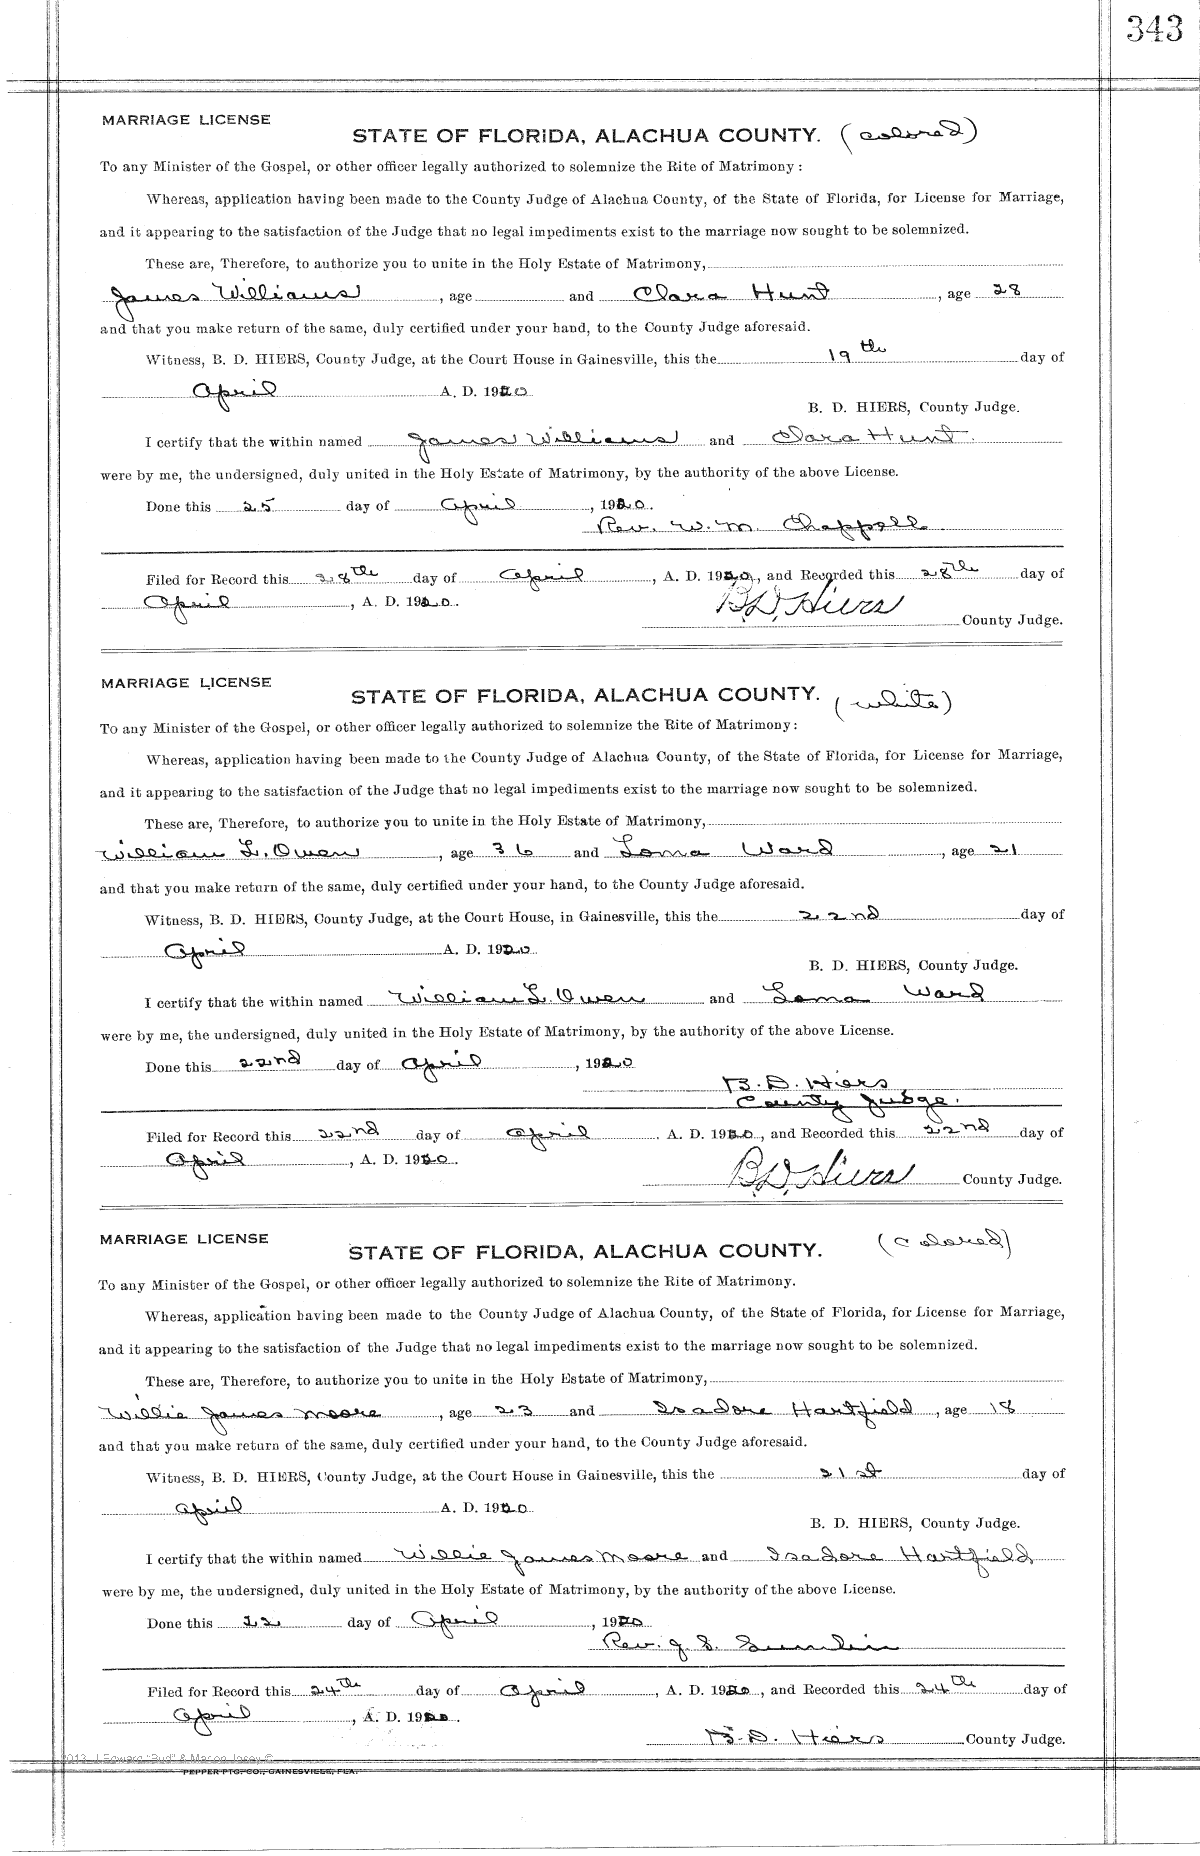 343
MARRIAGE LICENSE
STATE OF FLORIDA, ALACHUA COUNTY. (colored)
To any Minister of the Gospel, or other officer legally authorized to solemnize the Rite of Matrimony:
Whereas, application having been made to the County Judge of Alachua County, of the State of Florida, for License for Marriage,
and it appearing to the satisfaction of the Judge that no legal impediments exist to the marriage now sought to be solemnized.
These are, Therefore, to authorize you to unite in the Holy Estate of Matrimony,
James Williams, age and Clara Hunt, age 28
and that you make return of the same, duly certified under your hand, to the County Judge aforesaid.
Witness, B. D. HIERS, County Judge, at the Court House in Gainesville, this the 19th day of
April A. D. 1920
B. D. HIERS, County Judge.
I certify that the within named James Williams and Clara Hunt.
were by me, the undersigned, duly united in the Holy Estate of Matrimony, by the authority of the above License.
Done this 25 day of April, 1920.
Rev. W. M. Chappell
Filed for Record this 28th day of April, A. D. 1920, and Recorded this 28th day of
April, A. D. 1920.
B. D. Hiers County Judge.
MARRIAGE LICENSE
STATE OF FLORIDA, ALACHUA COUNTY. (white)
To any Minister of the Gospel, or other officer legally authorized to solemnize the Rite of Matrimony:
Whereas, application having been made to the County Judge of Alachua County, of the State of Florida, for License for Marriage,
and it appearing to the satisfaction of the Judge that no legal impediments exist to the marriage now sought to be solemnized.
These are, Therefore, to authorize you to unite in the Holy Estate of Matrimony,
William L. Owen, age 36 and Loma Ward, age 21
and that you make return of the same, duly certified under your hand, to the County Judge aforesaid.
Witness, B. D. HIERS, County Judge, at the Court House, in Gainesville, this the 22nd day of
April A. D. 1920
B. D. HIERS, County Judge.
I certify that the within named William L. Owen and Loma Ward
were by me, the undersigned, duly united in the Holy Estate of Matrimony, by the authority of the above License.
Done this 22nd day of April, 1920
B. D. Hiers
County Judge.
Filed for Record this 22nd day of April. A. D. 1920, and Recorded this 22nd day of
April, A. D. 1920.
B. D. Hiers County Judge.
MARRIAGE LICENSE
STATE OF FLORIDA, ALACHUA COUNTY. (Colored)
To any Minister of the Gospel, or other officer legally authorized to solemnize the Rite of Matrimony.
Whereas, application having been made to the County Judge of Alachua County, of the State of Florida, for License for Marriage,
and it appearing to the satisfaction of the Judge that no legal impediments exist to the marriage now sought to be solemnized.
These are, Therefore, to authorize you to unite in the Holy Estate of Matrimony,
Willie James Moore, age 23 and Isadore Hartfield, age 18
and that you make return of the same, duly certified under your hand, to the County Judge aforesaid.
Witness, B. D. HIERS, County Judge, at the Court House in Gainesville, this the 21st day of
April A. D. 1920
B. D. HIERS, County Judge.
I certify that the within named Willie James Moore and Isadore Hartfield
were by me, the undersigned, duly united in the Holy Estate of Matrimony, by the authority of the above License.
Done this 22 day of April, 1920
Rev. J. S. Gumlin
Filed for Record this 24th day of April, A. D. 1920, and Recorded this 24th day of
April, A. D. 1920.
B. D. Hiers County Judge.
2013 J Edward "Bud" & Marion Josey ©
PEPPER PTG. CO., GAINESVILLE, FLA.